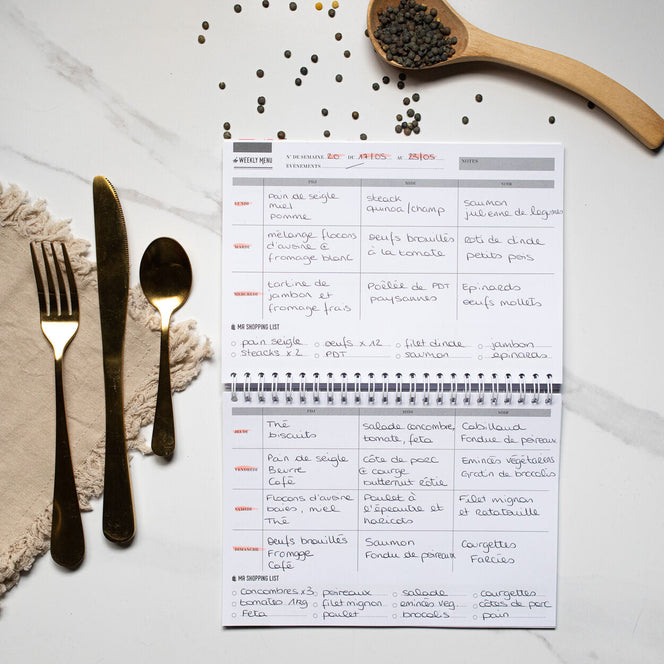 the WEEKLY MENU N° DE SEMAINE 20 DU 17/05 AU 23/05 NOTES
EVENEMENTS
PDJ MIDI SOIR
LUNDI
pain de seigle
miel
pomme
steack
quinoa/champ
saumon
julienne de légumes
MARDI
mélange flocons
d'avoine &
fromage blanc
Oeufs brouillés
à la tomate
Roti de dinde
petits pois
MERCREDI
tartine de
jambon et
fromage frais
Poêlée de PDT
paysannes
Epinards
oeufs mollets
MA SHOPPING LIST
pain seigle oeufs x 12 filet dinde jambon
steacks x 2 PDT saumon epinards
PDJ MIDI SOIR
JEUDI
Thé
biscuits
salade concombre,
tomate, feta
Cabillaud
Fondue de poireaux
VENDREDI
Pain de seigle
Beurre
Café
côte de porc
& courge
butternut rôtie
Emincés végétariens
Gratin de brocolis
SAMEDI
Flocons d'avoine
baies, miel
Thé
Poulet à
l'épeautre et
haricots
Filet mignon
et ratatouille
DIMANCHE
Oeufs brouillés
Fromage
Café
Saumon
Fondu de poireaux
Courgettes
Farcies
MA SHOPPING LIST
concombres x 3 poireaux salade courgettes
tomates 1kg filet mignon eminces veg. côtes de porc
Feta poulet brocolis pain